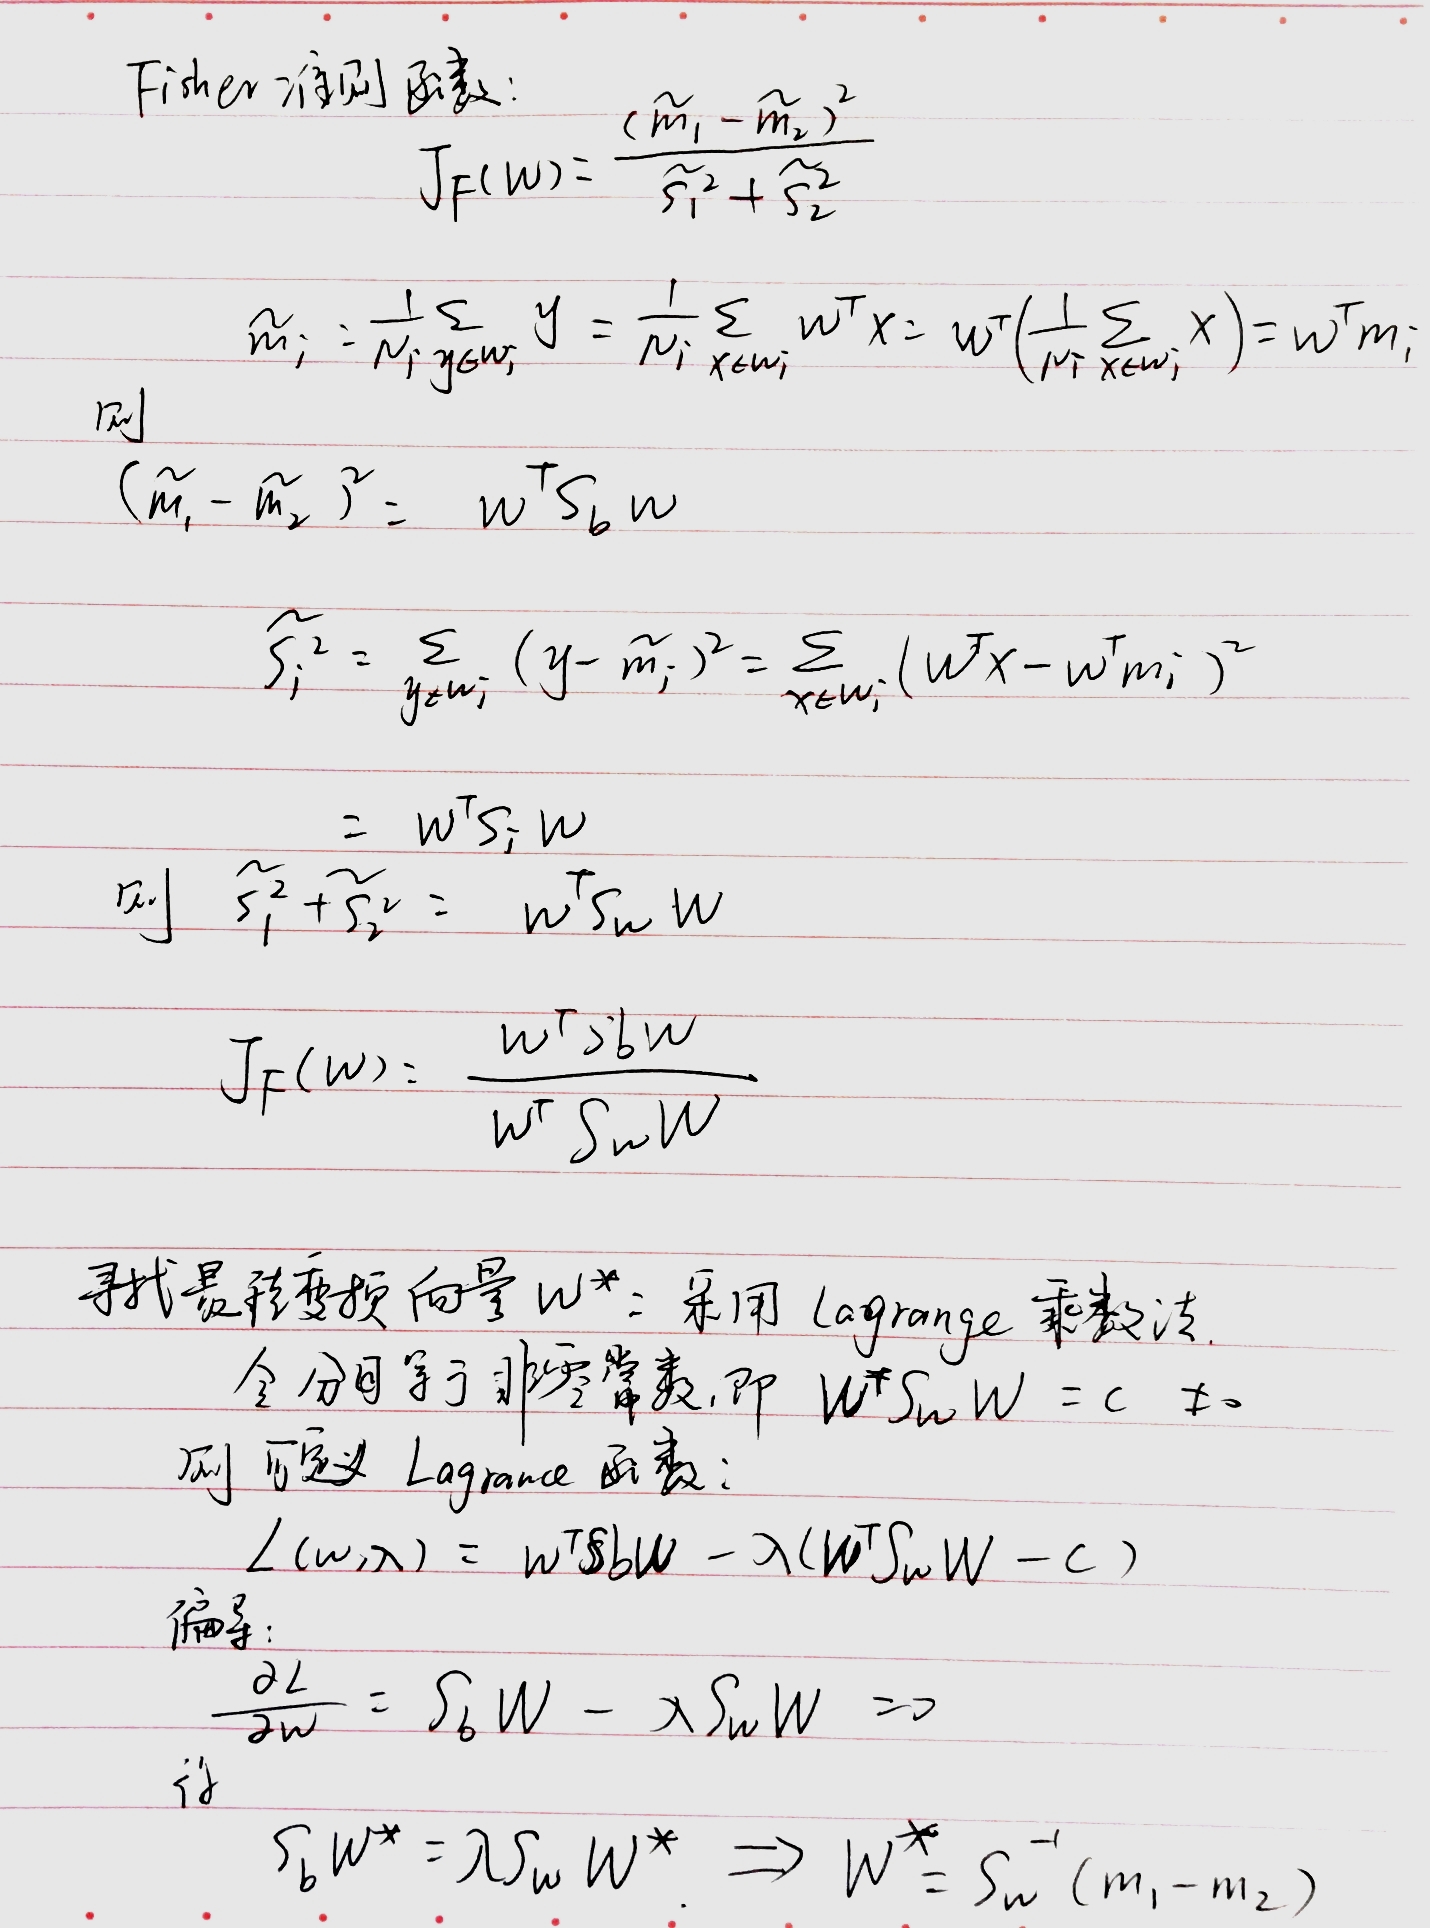 Fisher 准则函数:
J_F(W) = (m̃₁ - m̃₂)² / (s̃₁² + s̃₂²)
m̃ᵢ = 1/Nᵢ Σ_{y∈wᵢ} y = 1/Nᵢ Σ_{x∈wᵢ} wᵀx = wᵀ(1/Nᵢ Σ_{x∈wᵢ} x) = wᵀmᵢ
则
(m̃₁ - m̃₂)² = wᵀS_b w
s̃ᵢ² = Σ_{y∈wᵢ} (y - m̃ᵢ)² = Σ_{x∈wᵢ} (wᵀx - wᵀmᵢ)²
= wᵀSᵢw
则 s̃₁² + s̃₂² = wᵀS_w w
J_F(W) = wᵀS_b w / wᵀS_w w
寻找最强变换向量 W*: 采用 Lagrange 乘数法.
令分母等于非零常数,即 WᵀS_w W = c ≠ 0
则可定义 Lagrance 函数:
L(w,λ) = wᵀS_b W - λ(WᵀS_w W - c)
偏导:
∂L/∂w = S_b W - λS_w W = 0
得
S_b W* = λS_w W* ⇒ W* = S_w⁻¹(m₁ - m₂)